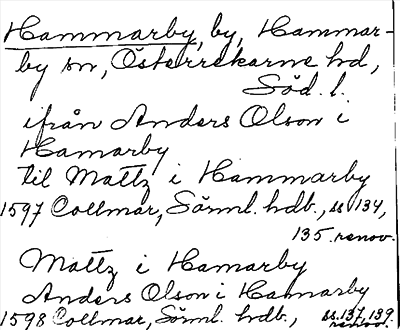 Hammarby, by, Hammar-
by sn, Österrekarne hd,
Söd. l.
ifrån Anders Olson i
Hamarby
til Mattz i Hammarby
1597 Collmar, Sörml. hdb., ss 134,
135. renov.
Mattz i Hamarby
Anders Olson i Hamarby
1598 Collmar, Sörml. hdb., ss. 137, 139
renov.